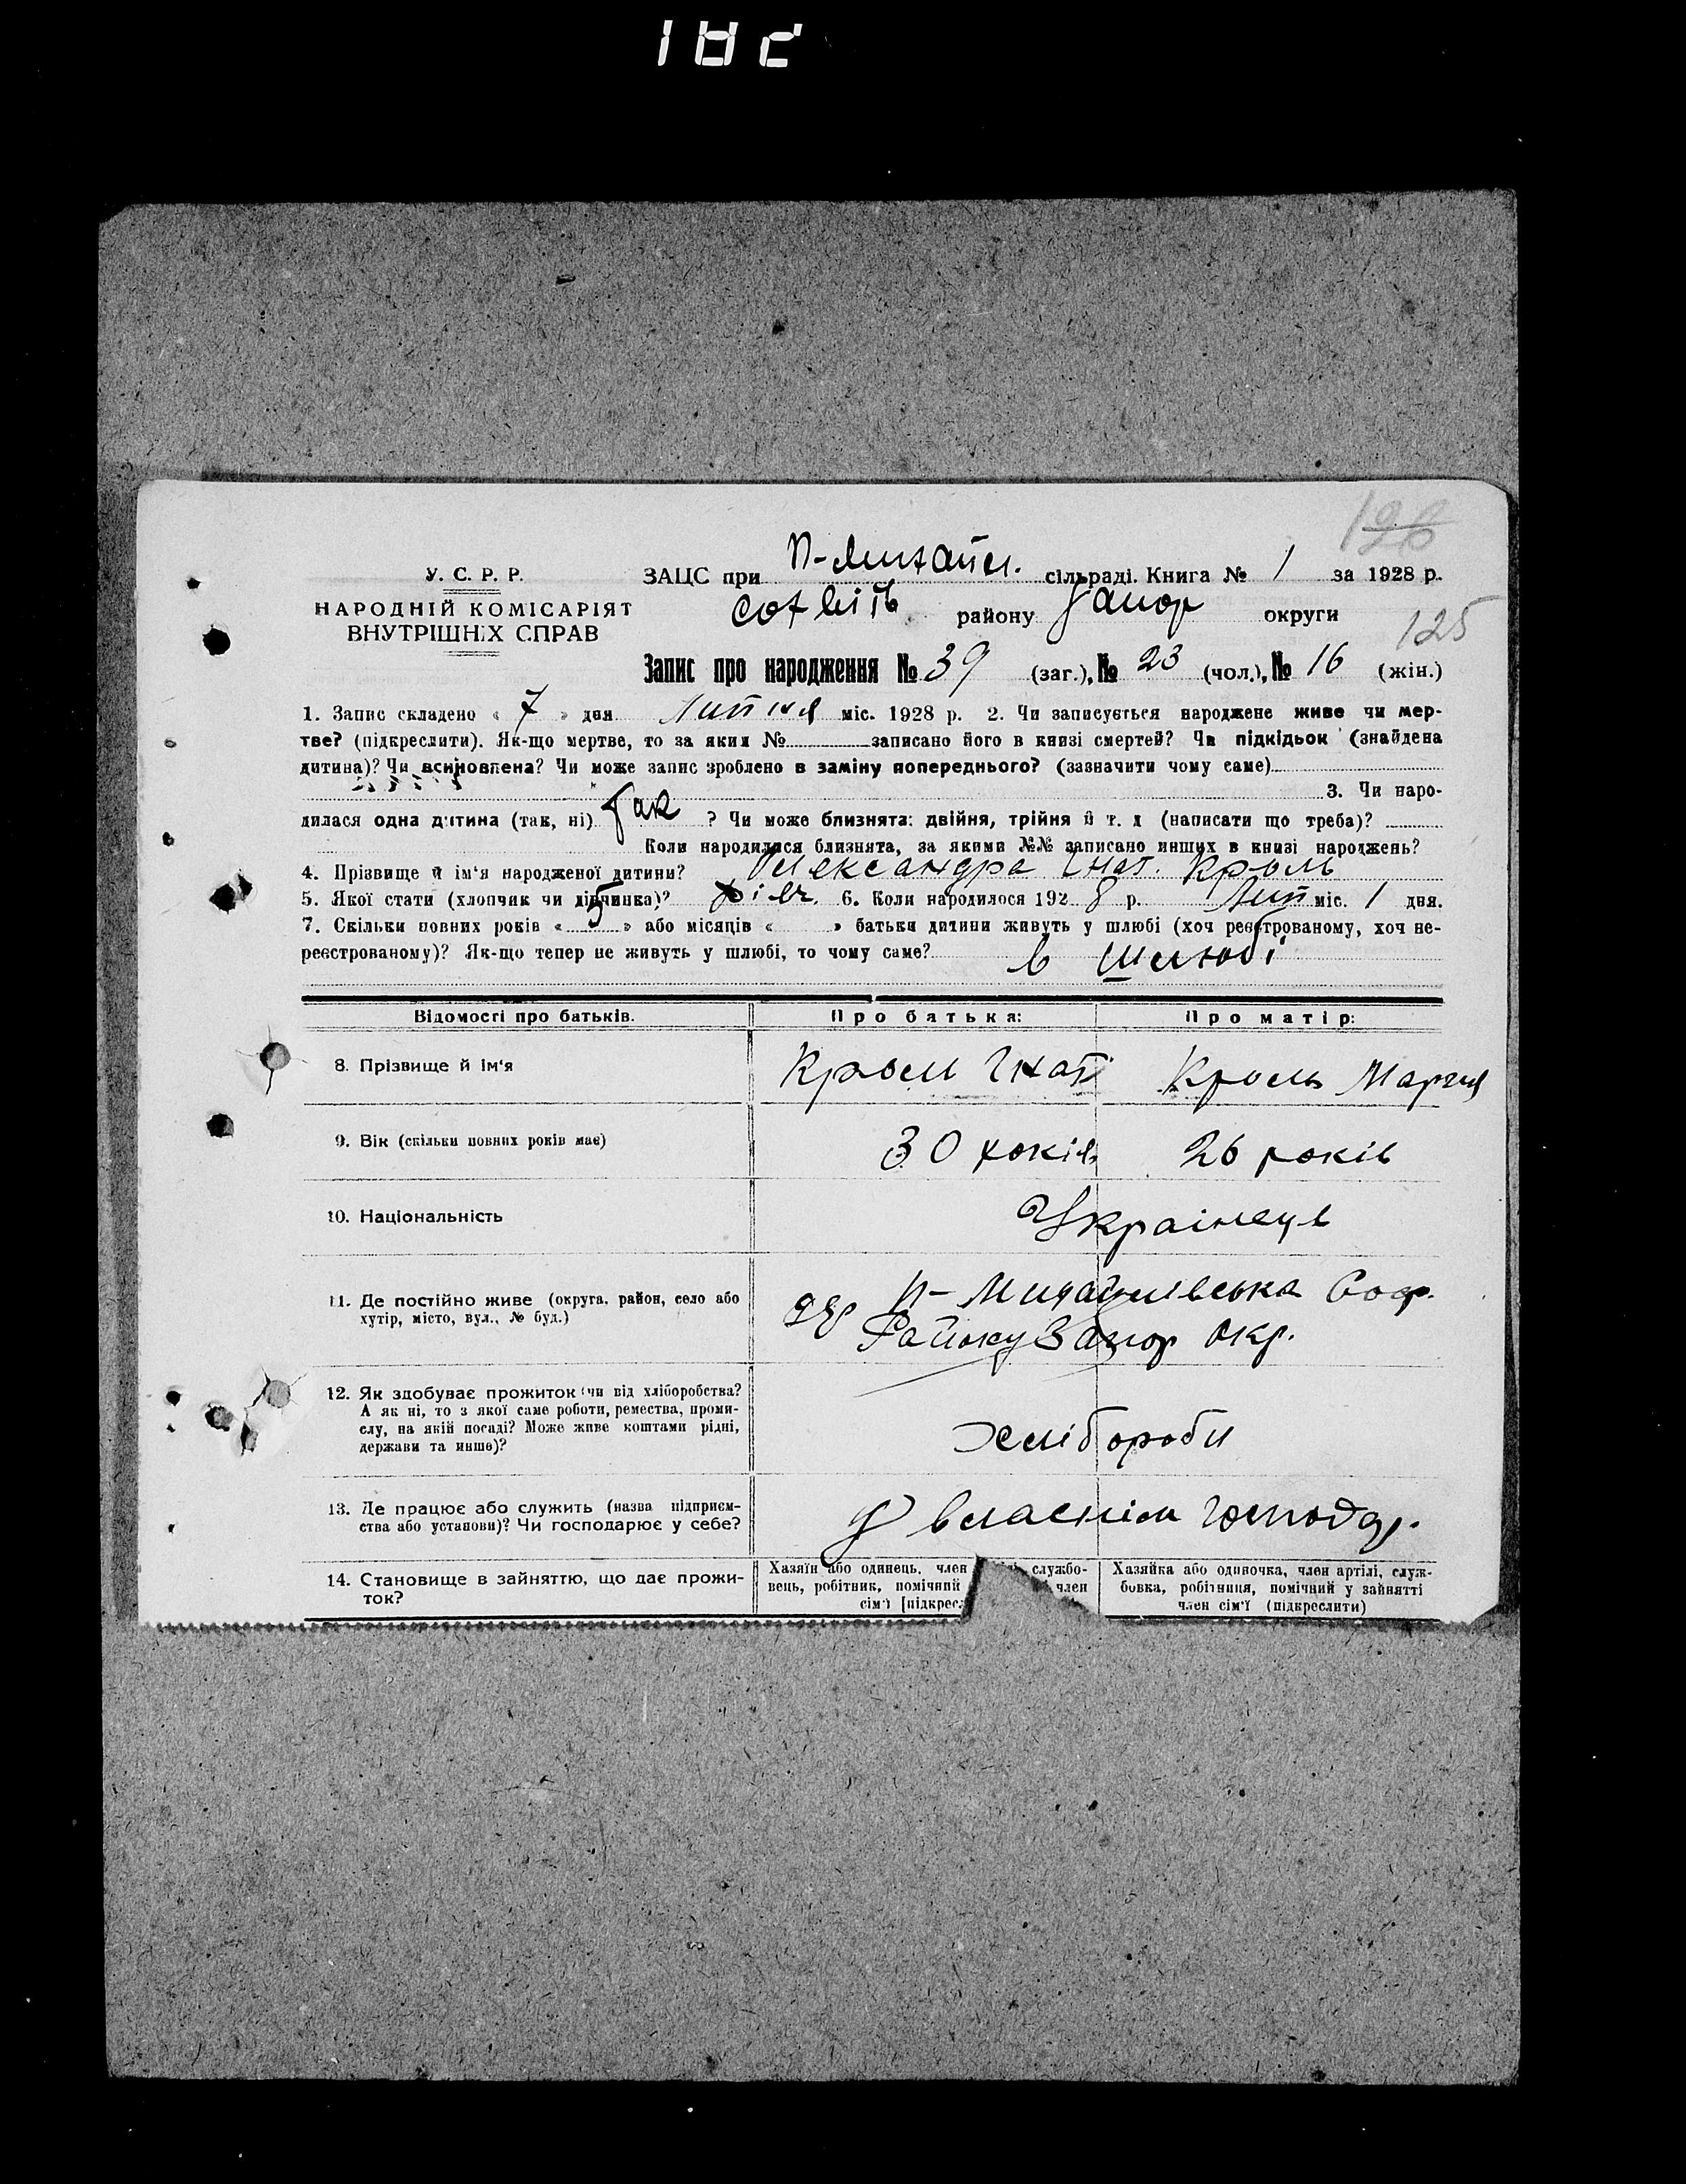 182
126
У. С. Р. Р.
НАРОДНІЙ КОМІСАРІЯТ
ВНУТРІШНІХ СПРАВ
ЗАЦС при сільраді. Книга № 1 за 1928 р.
району Запор округи
125
Запис про народження № 39 (заг.), № 23 (чол.), № 16 (жін.)
1. Запис складено « 7 » дня Липня міс. 1928 р. 2. Чи записується народжене живе чи мер-
тве? (підкреслити). Як-що мертве, то за яким № записано його в книзі смертей? Чи підкідьок (знайдена
дитина)? Чи всиновлена? Чи може запис зроблено в заміну попереднього? (зазначити чому саме)
3. Чи наро-
дилася одна дитина (так, ні) Так ? Чи може близнята: двійня, трійня й т. д (написати що треба)?
Коли народилися близнята, за якими №№ записано инших в книзі народжень?
4. Прізвище й ім'я народженої дитини? Олександра Гнат. Кроль
5. Якої стати (хлопчик чи дівчинка)? дівч. 6. Коли народилося 192 8 р. Лип міс. 1 дня.
7. Скільки повних років « 5 » або місяців « » батьки дитини живуть у шлюбі (хоч реєстрованому, хоч не-
реєстрованому)? Як-що тепер не живуть у шлюбі, то чому саме? в шлюбі
Відомості про батьків. Про батька: Про матір:
8. Прізвище й ім'я Кроль Гнат Кроль Марія
9. Вік (скільки повних років має) 30 років 26 років
10. Національність Українець
11. Де постійно живе (округа, район, село або
хутір, місто, вул., № буд.)
П-Михайлівська Соф.
Району Запор Окр.
12. Як здобуває прожиток (чи від хліборобства?
А як ні, то з якої саме роботи, ремества, проми-
слу, на якій посаді? Може живе коштами рідні,
держави та инше)?
хлібороби
13. Де працює або служить (назва підприєм-
ства або установи)? Чи господарює у себе?
У власнім господар.
14. Становище в зайняттю, що дає прожи-
ток?
Хазяїн або одинець, член службо-
вець, робітник, помічний член
сім'ї [підкрес
Хазяйка або одиночка, член артілі, служ-
бовка, робітниця, помічний у зайнятті
член сім'ї (підкреслити)